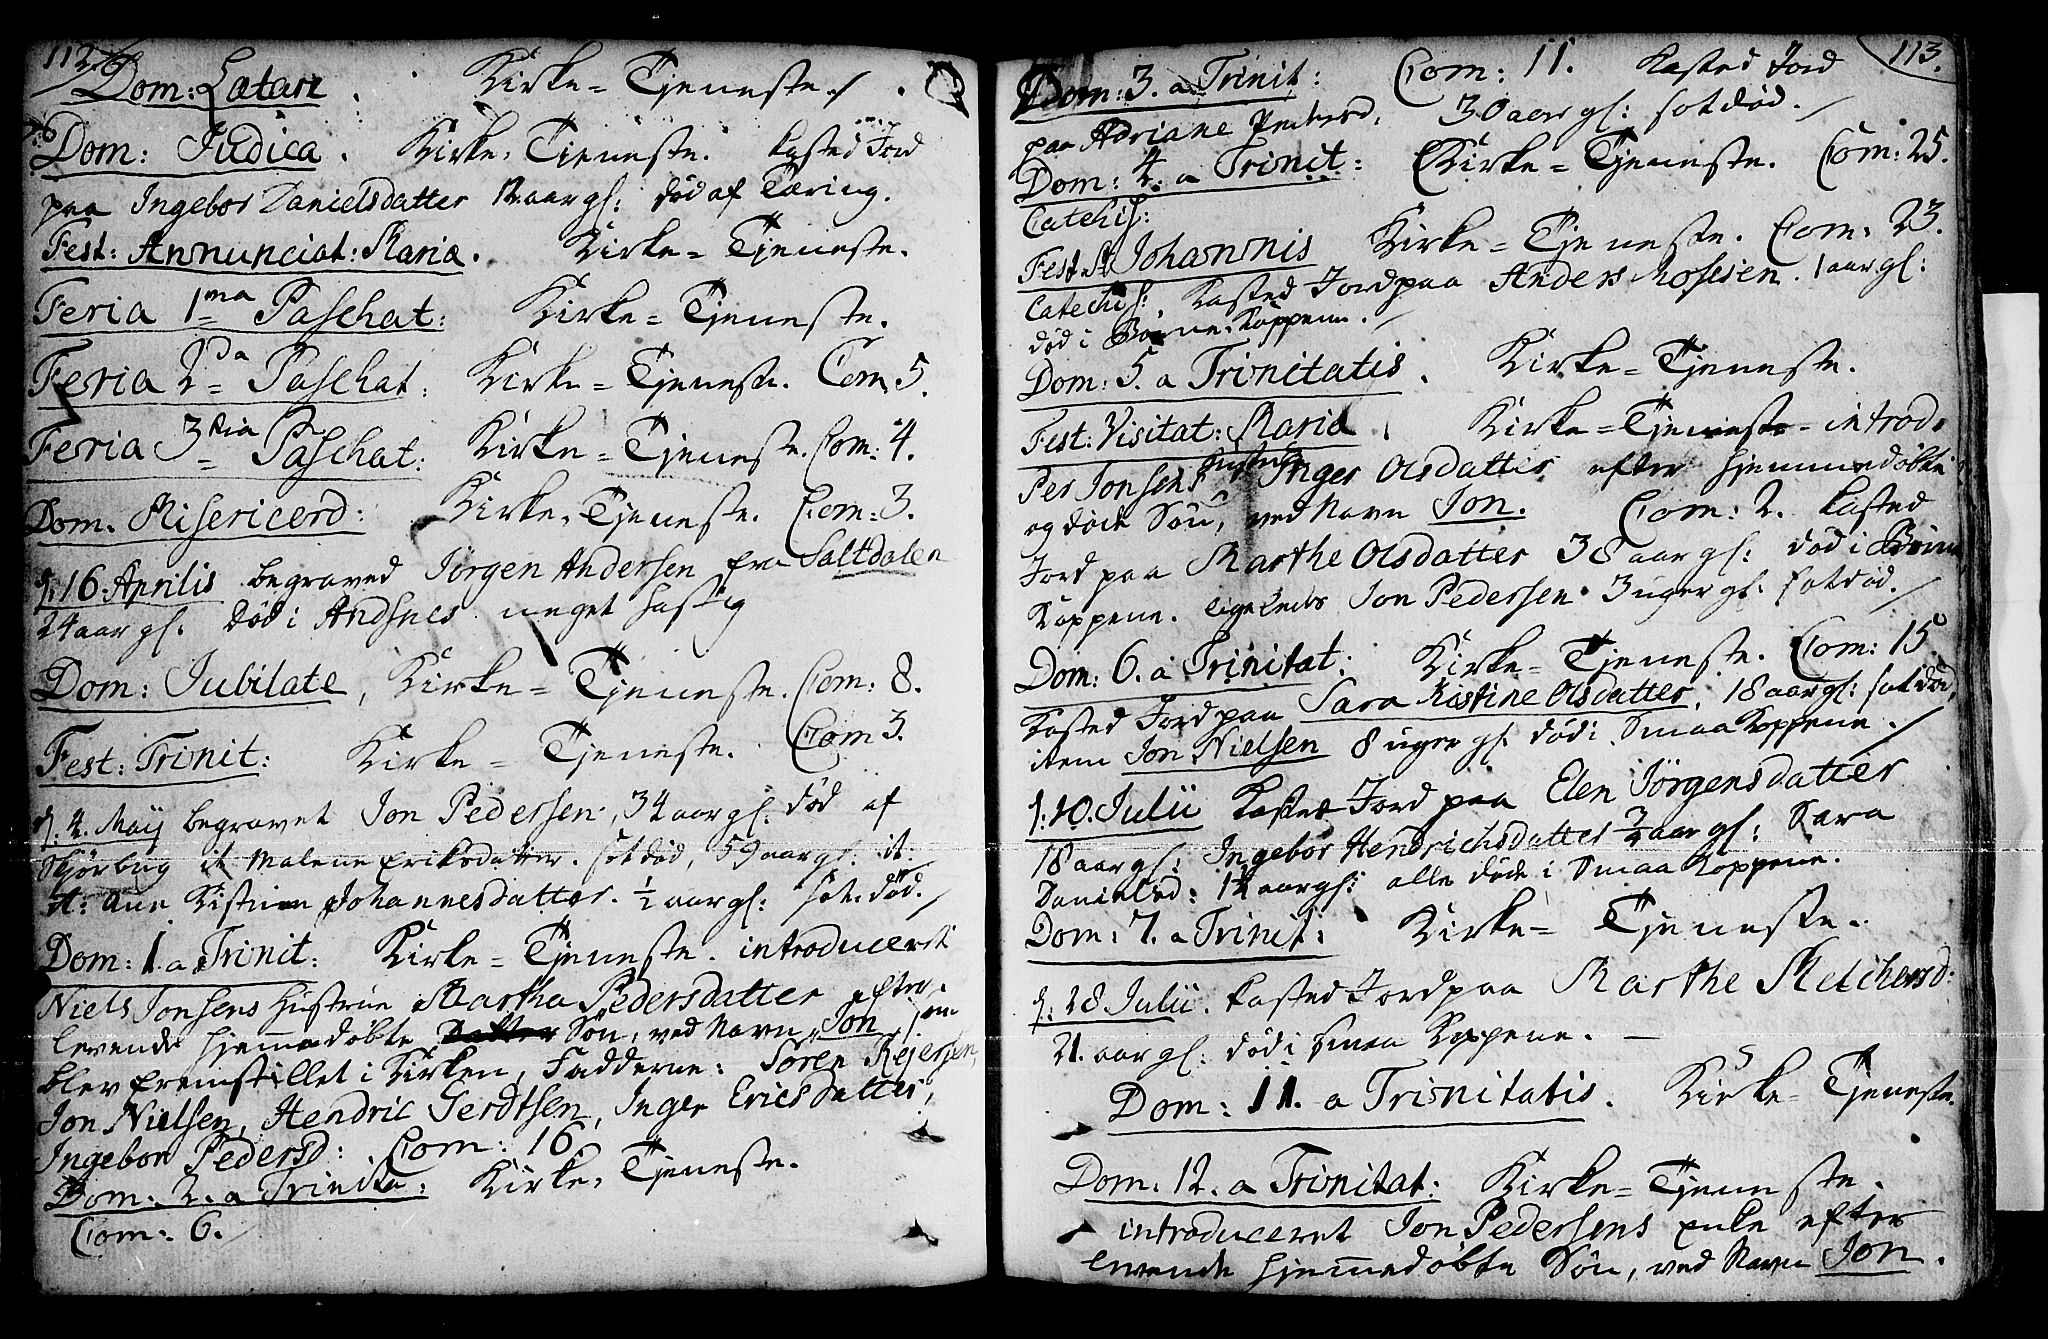 112.
Dom: Lætare . Kirke-Tjeneste.
Dom: Judica . Kirke-Tjeneste. kasted Jord
paa Ingebor Danielsdatter 12 aar gl: død af Tæring.
Fest: Annunciat: Mariæ . Kirke-Tjeneste.
Feria 1ma Paschat: Kirke-Tjeneste.
Feria 2da Paschat: Kirke-Tjeneste. Com 5.
Feria 3tia Paschat: Kirke-Tjeneste. Com: 4.
Dom. Misericord: Kirke-Tjeneste. Com: 3.
d: 16. Aprilis begraved Jörgen Andersen fra Saltdalen
24 aar gl. død i Andsnes meget hastig
Dom: Jubilate, Kirke-Tjeneste. Com: 8.
Fest: Trinit: Kirke-Tjeneste. Com 3.
d. 4. Maij begravet Jon Pedersen, 34 aar gl. død af
Skjørbug it Malene Eriksdatter. sotdød, 59 aar gl: it:
it: Ane Kistine Johannesdatter. ½ aar gl: sot. død.
Dom: 1. a Trinit: Kirke-Tjeneste. introduceret
Niels Jonsens Hustrue Martha Pedersdatter efter
levende hjemmedøbte Datter Søn, ved Navn Jon, som
blev fremstillet i Kirken, Fadderne: Sören Rejersen,
Jon Nielsen, Hendric Gerdtsen, Inger Ericsdatter,
Ingebor Pedersd: Com: 16.
Dom: 2. a Trinita: Kirke-Tjeneste.
Com: 6.
113.
Dom: 3. a Trinit: Com: 11. Kasted Jord
paa Adriane Pedersd, 30 aar gl: sotdød.
Dom: 4. a Trinit: Kirke-Tjeneste. Com: 25.
Catechis:
Fest St Johannis Kirke-Tjeneste. Com: 23.
Catechis: Kasted Jord paa Anders Mosesen. 1 aar gl:
død i Børne-Koppene.
Dom: 5. a Trinitatis . Kirke-Tjeneste.
Fest: Visitat: Mariæ . Kirke-Tjeneste - introd.
Per Jonsens Hustrue Inger Olsdatter efter hjemmedøbte
og døde Søn, ved Navn Jon. Com: 2. kasted
Jord paa Marthe Olsdatter 38 aar gl: død i Børne
Koppene. ligeledes Jon Pedersen 3 uger gl. sotdød.
Dom: 6. a Trinitat: Kirke-Tjeneste. Com: 15.
Kasted Jord paa Sara Kistine Olsdatter, 18 aar gl: sotdød,
item Jon Nielsen 8 uger gl. død i Smaa Koppene.
d: 10. Julii Kasted Jord paa Elen Jörgensdatter
18 aar gl: Ingebor Hendrichsdatter aar gl: Sara
Danielsd: aar gl: alle døde i Smaa Koppene.
Dom: 7. a Trinit: Kirke-Tjeneste.
d: 28 Julii. kasted Jord paa Marthe Melchersd:
21. aar gl. død i smaa Koppene.
Dom: 11. a Trinitatis. Kirke-Tjeneste.
Dom: 12. a Trinitat: Kirke-Tjeneste.
introduceret Jon Pedersens enke efter
levende hjemmedøbte Søn, ved Navn Jon.